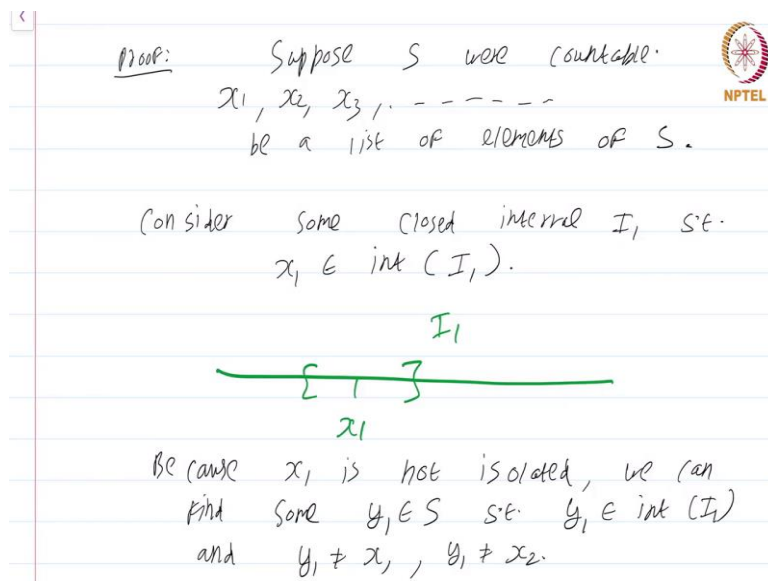 Proof: Suppose S were countable.
x1, x2, x3, . - - - - - -
be a list of elements of S.
Consider some closed interval I1 s.t.
x1 ∈ int (I1).
I1
[ ]
x1
Because x1 is not isolated, we can
find some y1 ∈ S s.t. y1 ∈ int (I1)
and y1 ≠ x1, y1 ≠ x2.
NPTEL